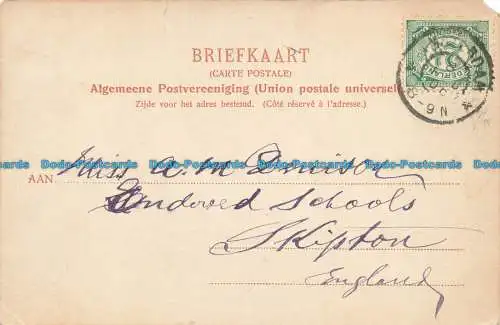 BRIEFKAART
(CARTE POSTALE)
Algemeene Postvereeniging (Union postale universel
Zijde voor het adres bestemd. (Côté réservé à l'adresse.)
AAN Miss A. M.
Endowed Schools
Skipton
England
2½
DAM
8-9 N
Dodo-Postcards Dodo-Postcards Dodo-Postcards Dodo-Postcards